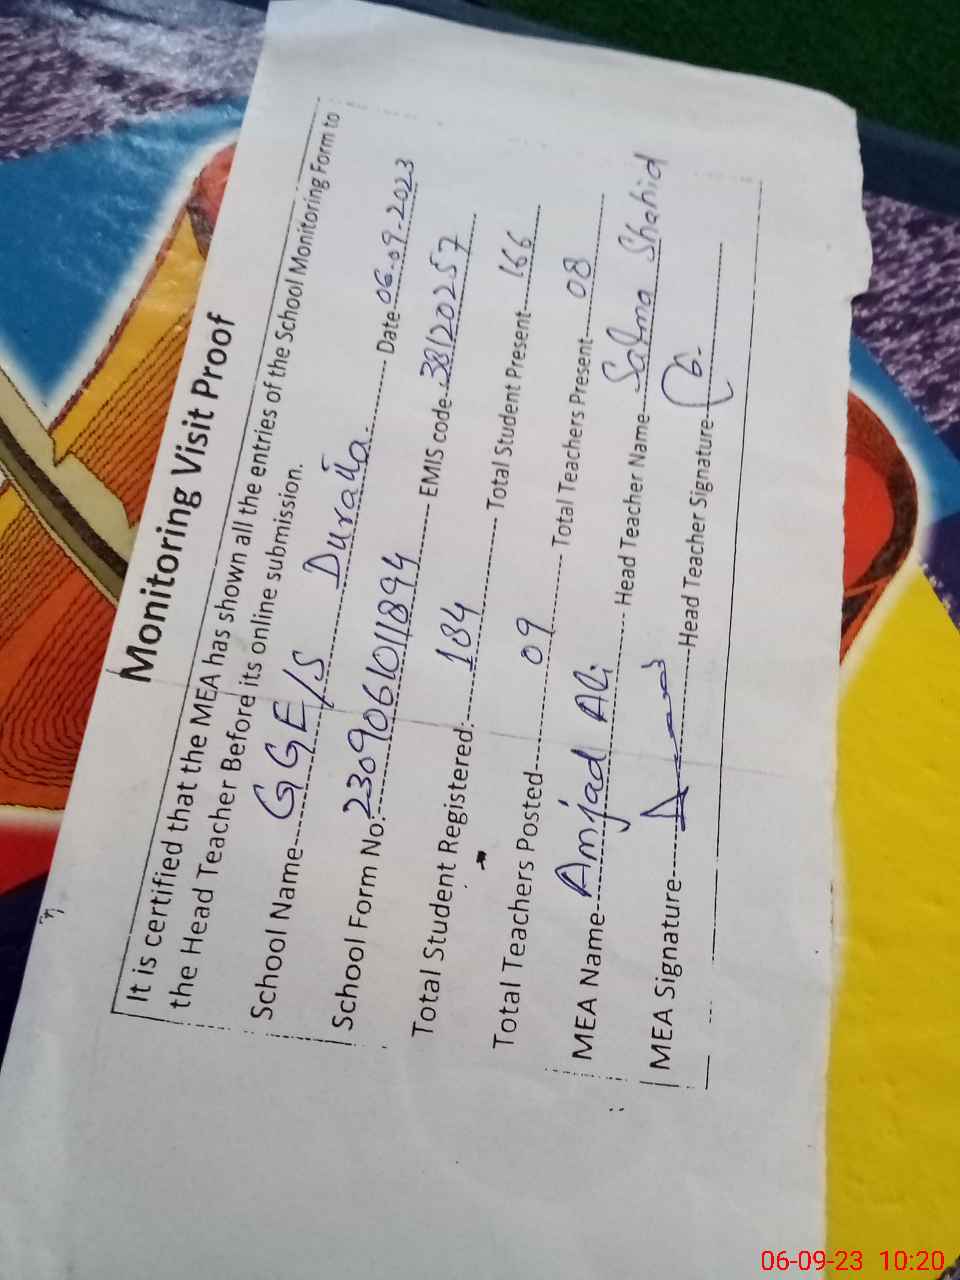 Monitoring Visit Proof
It is certified that the MEA has shown all the entries of the School Monitoring Form to
the Head Teacher Before its online submission.
School Name GGE/S Duratta Date 06.09-2023
School Form No: 2309061011894 EMIS code 38120257
Total Student Registered: 184 Total Student Present 166
Total Teachers Posted 09 Total Teachers Present 08
MEA Name Amjad Ali Head Teacher Name Salma Shahid
MEA Signature Head Teacher Signature
06-09-23 10:20